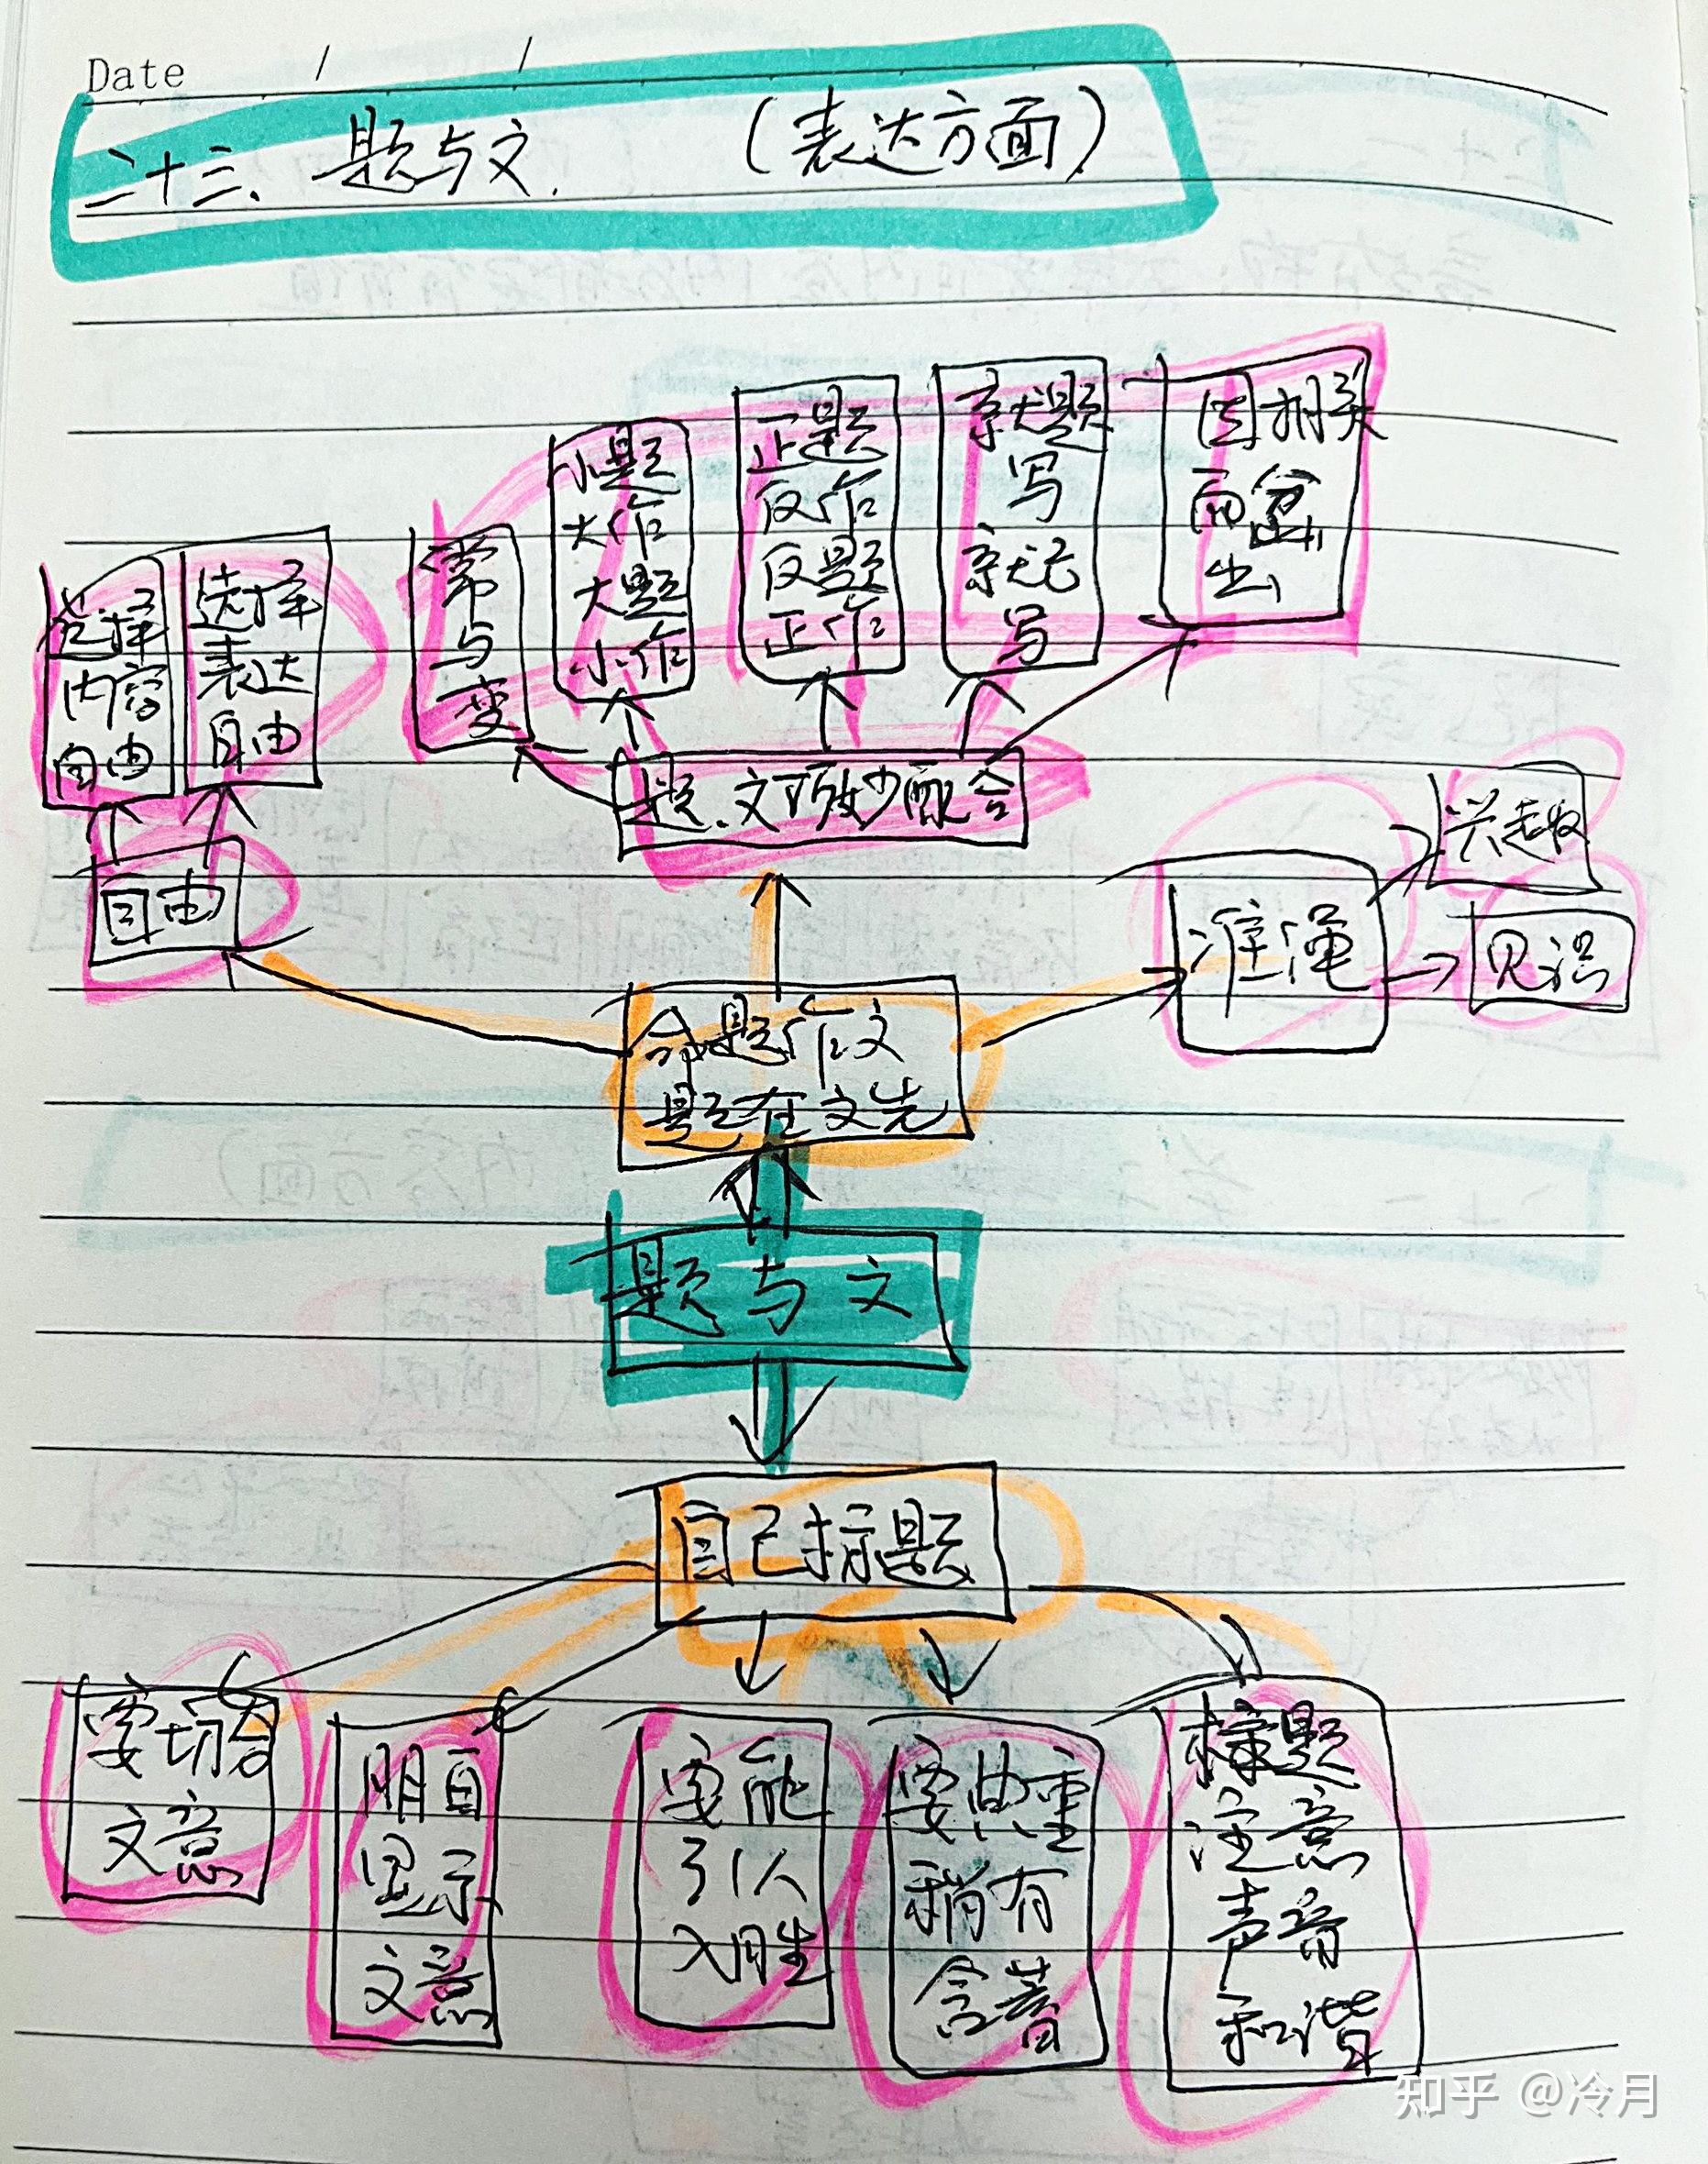 Date / /
二十三、题与文. (表达方面)
选择
内容
自由
选择
表达
自由
常
与
变
小题
大作
大题
小作
正题
反作
反题
正作
就题
写
就无
写
因相关
而岔
出
题、文巧妙配合
自由
准绳
兴趣
见识
命题作文
题在文先
题与文
自己标题
要切合
文意
明白
显示
文意
要能
引人
入胜
要典重
稍有
含蓄
标题
注意
声音
和谐
知乎 @冷月